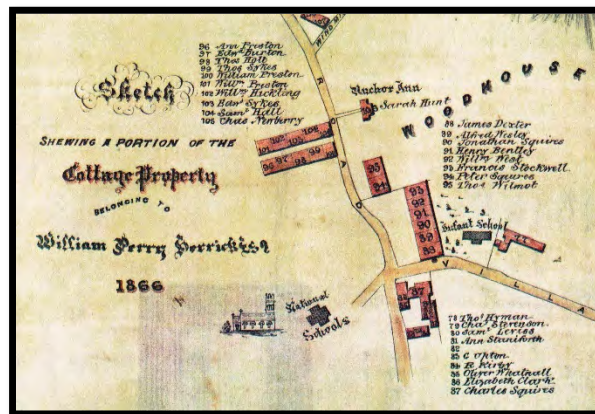 96 Ann Preston
97 Edwd Burton
98 Thos Holt
99 Thos Sykes
100 William Preston
101 Willm Preston
102 Willm Hickling
103 Edwd Sykes
104 Saml Hall
105 Chas Newberry
WINDMILL
ROAD
Sketch
SHEWING A PORTION OF THE
Cottage Property
BELONGING TO
William Perry Herrick Esq
1866
Anchor Inn
Sarah Hunt
WOODHOUSE
88 James Dexter
89 Alfred Wesley
90 Jonathan Squires
91 Henry Bentley
92 Willm West
93 Francis Stockwell
94 Peter Squires
95 Thos Wilmot
Infant School
VILLA
National
Schools
78 Thos Hyman
79 Chas Stevenson
80 Saml
81 Ann Staniforth
82
83 C Upton
84 R Kirby
85 Oliver Whatnall
86 Elizabeth Clark
87 Charles Squires